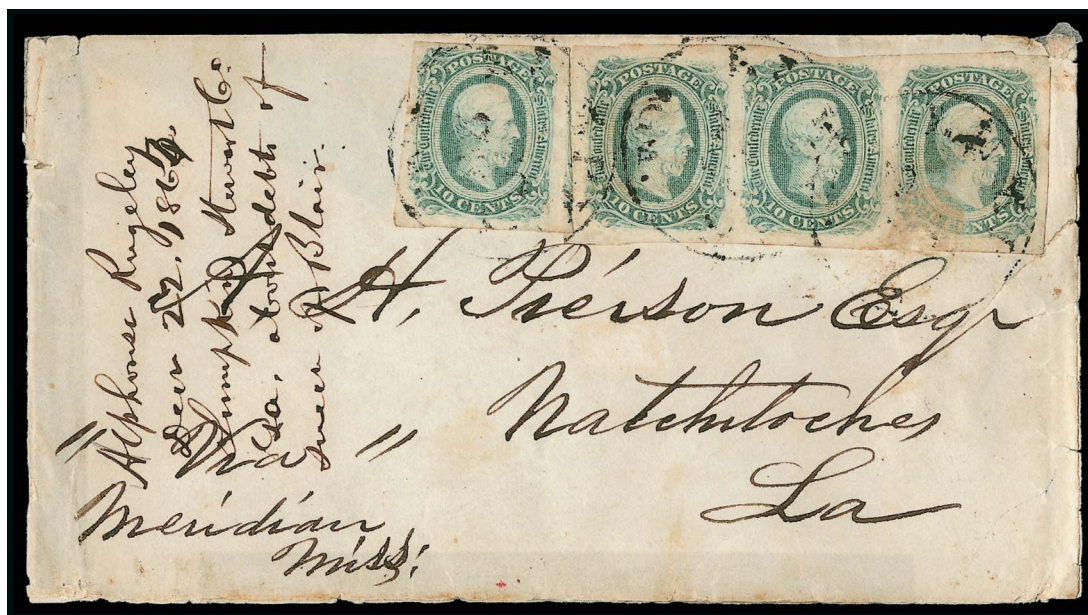 POSTAGE
The Confederate States of America
10 CENTS
POSTAGE
The Confederate States of America
10 CENTS
POSTAGE
The Confederate States of America
10 CENTS
POSTAGE
The Confederate States of America
CENTS
Alphonse Rugeley
22, 186
Lumpkin Stewart Co.
Ga, about debts of
Blair.
A, Pierson Esqr
Natchitoches
La
"Via"
Meridian
Miss: